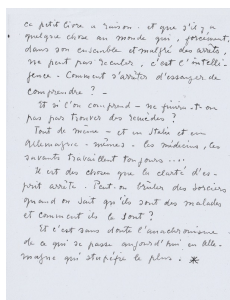 ce petit livre a raison. et que s'il y a
quelque chose au monde qui, forcément,
dans son ensemble et malgré des arrêts,
ne peut pas reculer, c'est l'intelli-
gence - Comment s'arrêter d'essayer de
comprendre ? -
Et si l'on comprend - ne finira-t-on
pas par trouver des remèdes ?
Tout de même - et en Italie et en
Allemagne - mêmes - les médecins, les
savants travaillent toujours ....
Il est des choses que la clarté d'es-
prit arrête. Peut-on brûler des sorciers
quand on sait qu'ils sont des malades
et comment ils le sont ?
Et c'est sans doute l'anachronisme
de ce qui se passe aujourd'hui en Alle-
magne qui stupéfie le plus. *